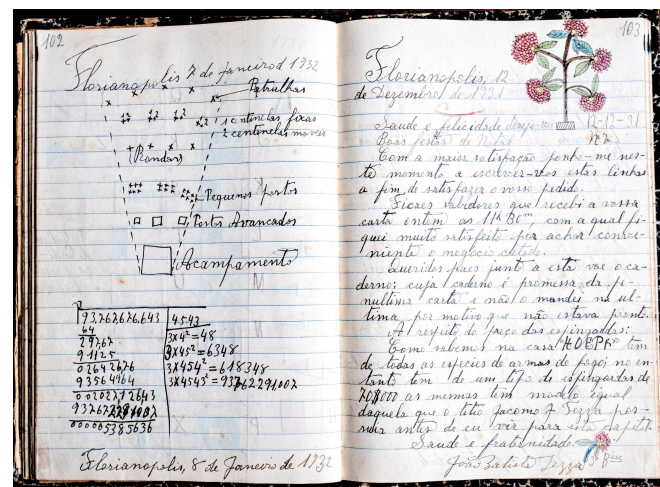 102
Florianopolis 7 de Janeiro d 1932
Patrulhas
1 centinelas fixas
2 centinelas moveis
(Rondas)
Pequenos postos
Postos Avancados
Acampamento
93,767,676,643
4543
64
3x4²=48
29767
3x45²=6348
91125
3x454²=618348
02642676
3x4545²=93762291007
93564964
00202712643
93767291007
000005385636
Florianopolis, 8 de Janeiro de 1932
103
Florianopolis, 12
de Dezembro de 1931
Saude e felicidade desejo-vos
12-12-31
Boas festas de Natal
Com a maior satisfação ponho-me nes-
te momento a escrever-vos estas linhas
a fim de satisfazer o vosso pedido.
Ficaes sabedores que recebi a vossa
carta ontem as com a qual fi-
quei muito satisfeito por achar conve-
niente o negocio citado.
Queridos paes junto a esta vae o ca-
derno; cujo caderno é promessa da pe-
nultima carta e não o mandei na ul-
tima por motivo que não estava pronto.
A respeito do preço das espingardas:
Como sabemos na casa HOEPKE tem
de todas as especies de armas de fogo; no en-
tanto tem de um tipo de espingardas de
70$000 as mesmas tem modelo igual
daquela que o titio Jacomo J Tezza pos-
suia antes de eu vir para esta capital.
Saude e fraternidade
João Batista Tezza